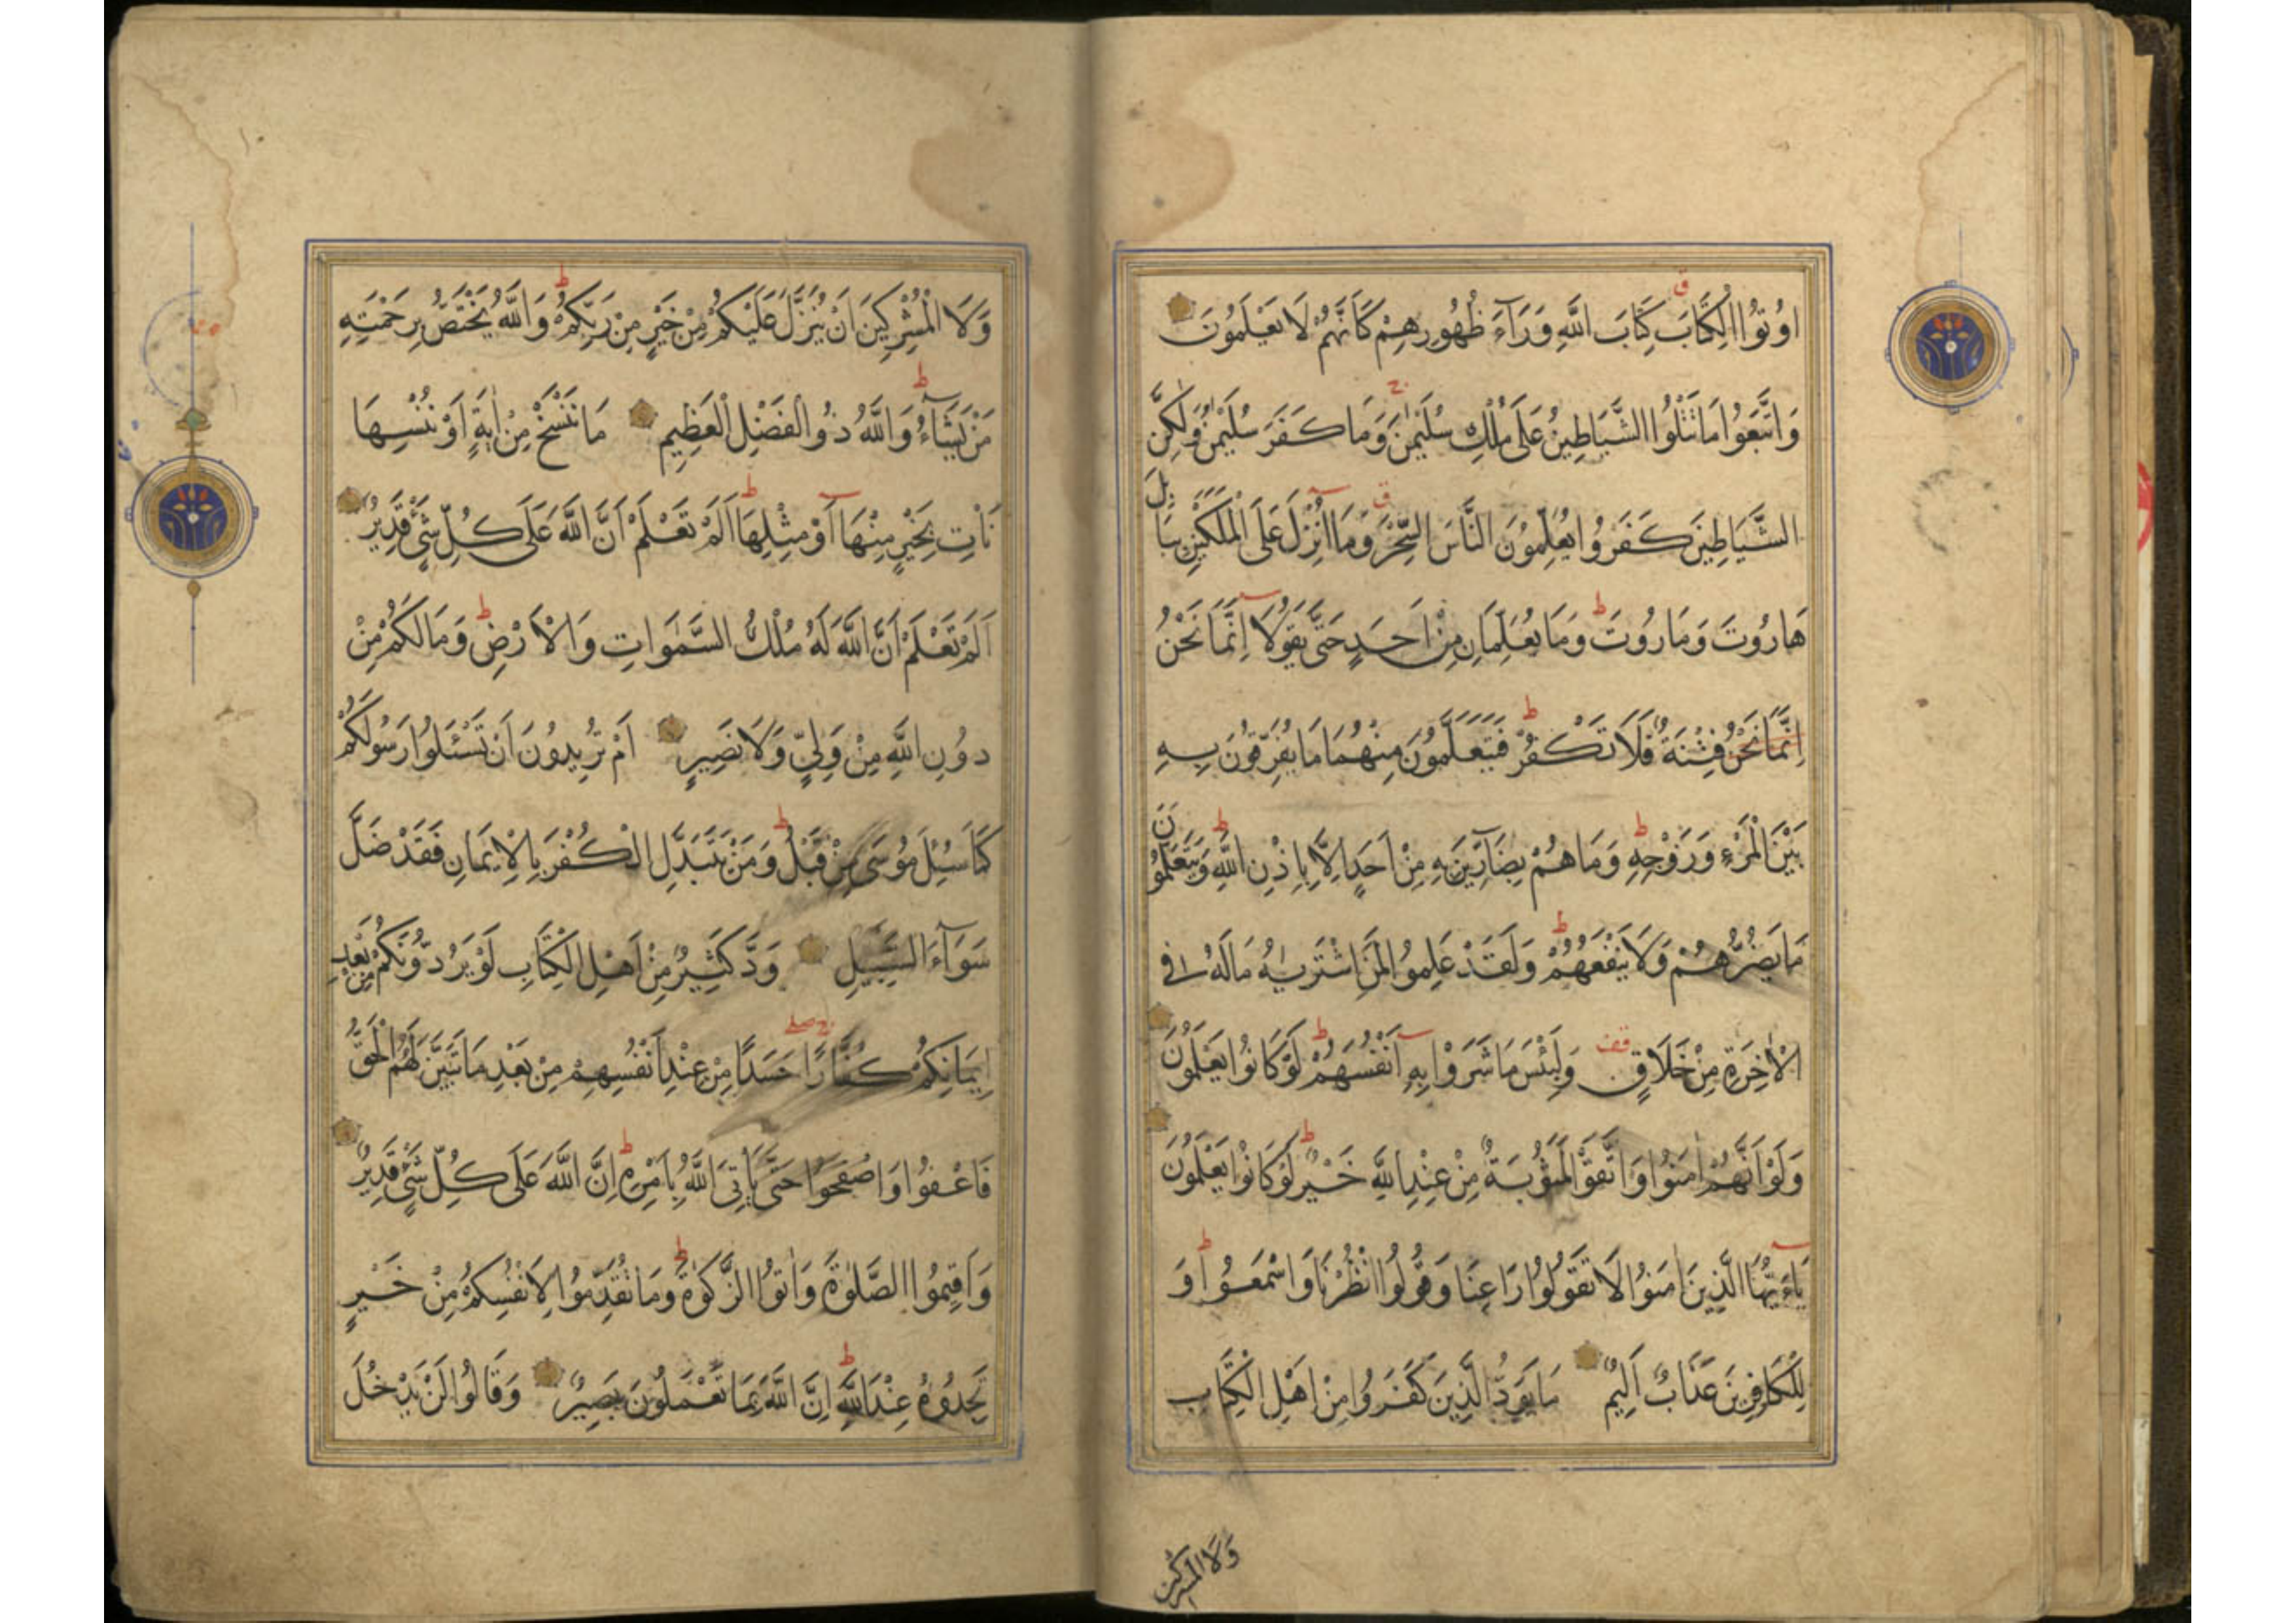 اُوتُوا الْكِتَابَ كِتَابَ اللَّهِ وَرَآءَ ظُهُورِهِمْ كَاَنَّهُمْ لَا يَعْلَمُونَ
وَاتَّبَعُوا مَا تَتْلُوا الشَّيَاطِينُ عَلَى مُلْكِ سُلَيْمٰنَ وَمَا كَفَرَ سُلَيْمٰنُ وَلٰكِنَّ
الشَّيَاطِينَ كَفَرُوا يُعَلِّمُونَ النَّاسَ السِّحْرَ وَمَا اُنْزِلَ عَلَى الْمَلَكَيْنِ بِبَابِلَ
هَارُوتَ وَمَارُوتَ وَمَا يُعَلِّمَانِ مِنْ اَحَدٍ حَتَّى يَقُولَا اِنَّمَا نَحْنُ
اِنَّمَا نَحْنُ فِتْنَةٌ فَلَا تَكْفُرْ فَيَتَعَلَّمُونَ مِنْهُمَا مَا يُفَرِّقُونَ بِهِ
بَيْنَ الْمَرْءِ وَزَوْجِهِ وَمَا هُمْ بِضَآرِّينَ بِهِ مِنْ اَحَدٍ اِلَّا بِاِذْنِ اللَّهِ وَيَتَعَلَّمُونَ
مَا يَضُرُّهُمْ وَلَا يَنْفَعُهُمْ وَلَقَدْ عَلِمُوا لَمَنِ اشْتَرٰيهُ مَا لَهُ فِي
الْاٰخِرَةِ مِنْ خَلَاقٍ قف وَلَبِئْسَ مَا شَرَوْا بِهِ اَنْفُسَهُمْ لَوْ كَانُوا يَعْلَمُونَ
وَلَوْ اَنَّهُمْ اٰمَنُوا وَاتَّقَوْا لَمَثُوبَةٌ مِنْ عِنْدِ اللَّهِ خَيْرٌ لَوْ كَانُوا يَعْلَمُونَ
يَاءَيُّهَا الَّذِينَ اٰمَنُوا لَا تَقُولُوا رَاعِنَا وَقُولُوا انْظُرْنَا وَاسْمَعُوا وَ
لِلْكَافِرِينَ عَذَابٌ اَلِيمٌ مَا يَوَدُّ الَّذِينَ كَفَرُوا مِنْ اَهْلِ الْكِتَابِ
وَلَا الْمُشْرِكِينَ
وَلَا الْمُشْرِكِينَ اَنْ يُنَزَّلَ عَلَيْكُمْ مِنْ خَيْرٍ مِنْ رَبِّكُمْ وَاللَّهُ يَخْتَصُّ بِرَحْمَتِهِ
مَنْ يَشَآءُ وَاللَّهُ ذُو الْفَضْلِ الْعَظِيمِ مَا نَنْسَخْ مِنْ اٰيَةٍ اَوْ نُنْسِهَا
نَاْتِ بِخَيْرٍ مِنْهَا اَوْ مِثْلِهَا اَلَمْ تَعْلَمْ اَنَّ اللَّهَ عَلَى كُلِّ شَيْءٍ قَدِيرٌ
اَلَمْ تَعْلَمْ اَنَّ اللَّهَ لَهُ مُلْكُ السَّمٰوَاتِ وَالْاَرْضِ وَمَا لَكُمْ مِنْ
دُونِ اللَّهِ مِنْ وَلِيٍّ وَلَا نَصِيرٍ اَمْ تُرِيدُونَ اَنْ تَسْئَلُوا رَسُولَكُمْ
كَمَا سُئِلَ مُوسَى مِنْ قَبْلُ وَمَنْ يَتَبَدَّلِ الْكُفْرَ بِالْاِيمَانِ فَقَدْ ضَلَّ
سَوَآءَ السَّبِيلِ وَدَّ كَثِيرٌ مِنْ اَهْلِ الْكِتَابِ لَوْ يَرُدُّونَكُمْ مِنْ بَعْدِ
اِيمَانِكُمْ كُفَّارًا حَسَدًا مِنْ عِنْدِ اَنْفُسِهِمْ مِنْ بَعْدِ مَا تَبَيَّنَ لَهُمُ الْحَقُّ
فَاعْفُوا وَاصْفَحُوا حَتَّى يَاْتِيَ اللَّهُ بِاَمْرِهِ اِنَّ اللَّهَ عَلَى كُلِّ شَيْءٍ قَدِيرٌ
وَاَقِيمُوا الصَّلٰوةَ وَاٰتُوا الزَّكٰوةَ وَمَا تُقَدِّمُوا لِاَنْفُسِكُمْ مِنْ خَيْرٍ
تَجِدُوهُ عِنْدَ اللَّهِ اِنَّ اللَّهَ بِمَا تَعْمَلُونَ بَصِيرٌ وَقَالُوا لَنْ يَدْخُلَ